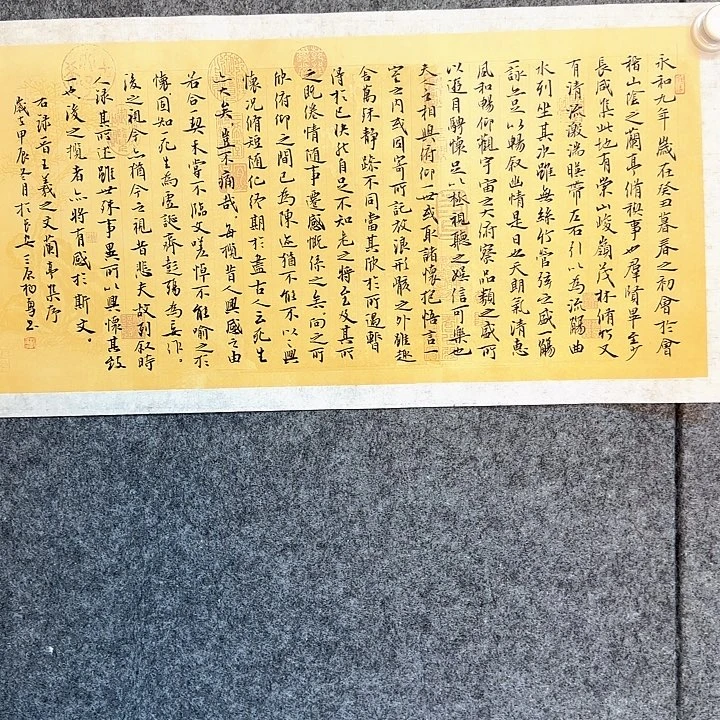 永和九年歲在癸丑暮春之初會於會
稽山陰之蘭亭脩稧事也羣賢畢至少
長咸集此地有崇山峻嶺茂林脩竹又
有清流激湍暎帶左右引以為流觴曲
水列坐其次雖無絲竹管弦之盛觴
一詠亦足以暢叙幽情是日也天朗氣清惠
風和暢仰觀宇宙之大俯察品類之盛所
以遊目騁懷足以極視聽之娛信可樂也
夫人之相與俯仰一世或取諸懷抱悟言一
室之內或因寄所託放浪形骸之外雖趣
舍萬殊靜躁不同當其欣於所遇暫
得於己快然自足不知老之將至及其所
之既倦情隨事遷感慨係之矣向之所
欣俯仰之間已為陳迹猶不能不以之興
懷況脩短隨化終期於盡古人云死生
亦大矣豈不痛哉每攬昔人興感之由
若合一契未嘗不臨文嗟悼不能喻之於
懷固知一死生為虛誕齊彭殤為妄作。
後之視今亦猶今之視昔悲夫故列叙時
人錄其所述雖世殊事異所以興懷其致
一也後之攬者亦將有感於斯文。
右錄晉王羲之文蘭亭集序
歲在甲辰冬月於長安